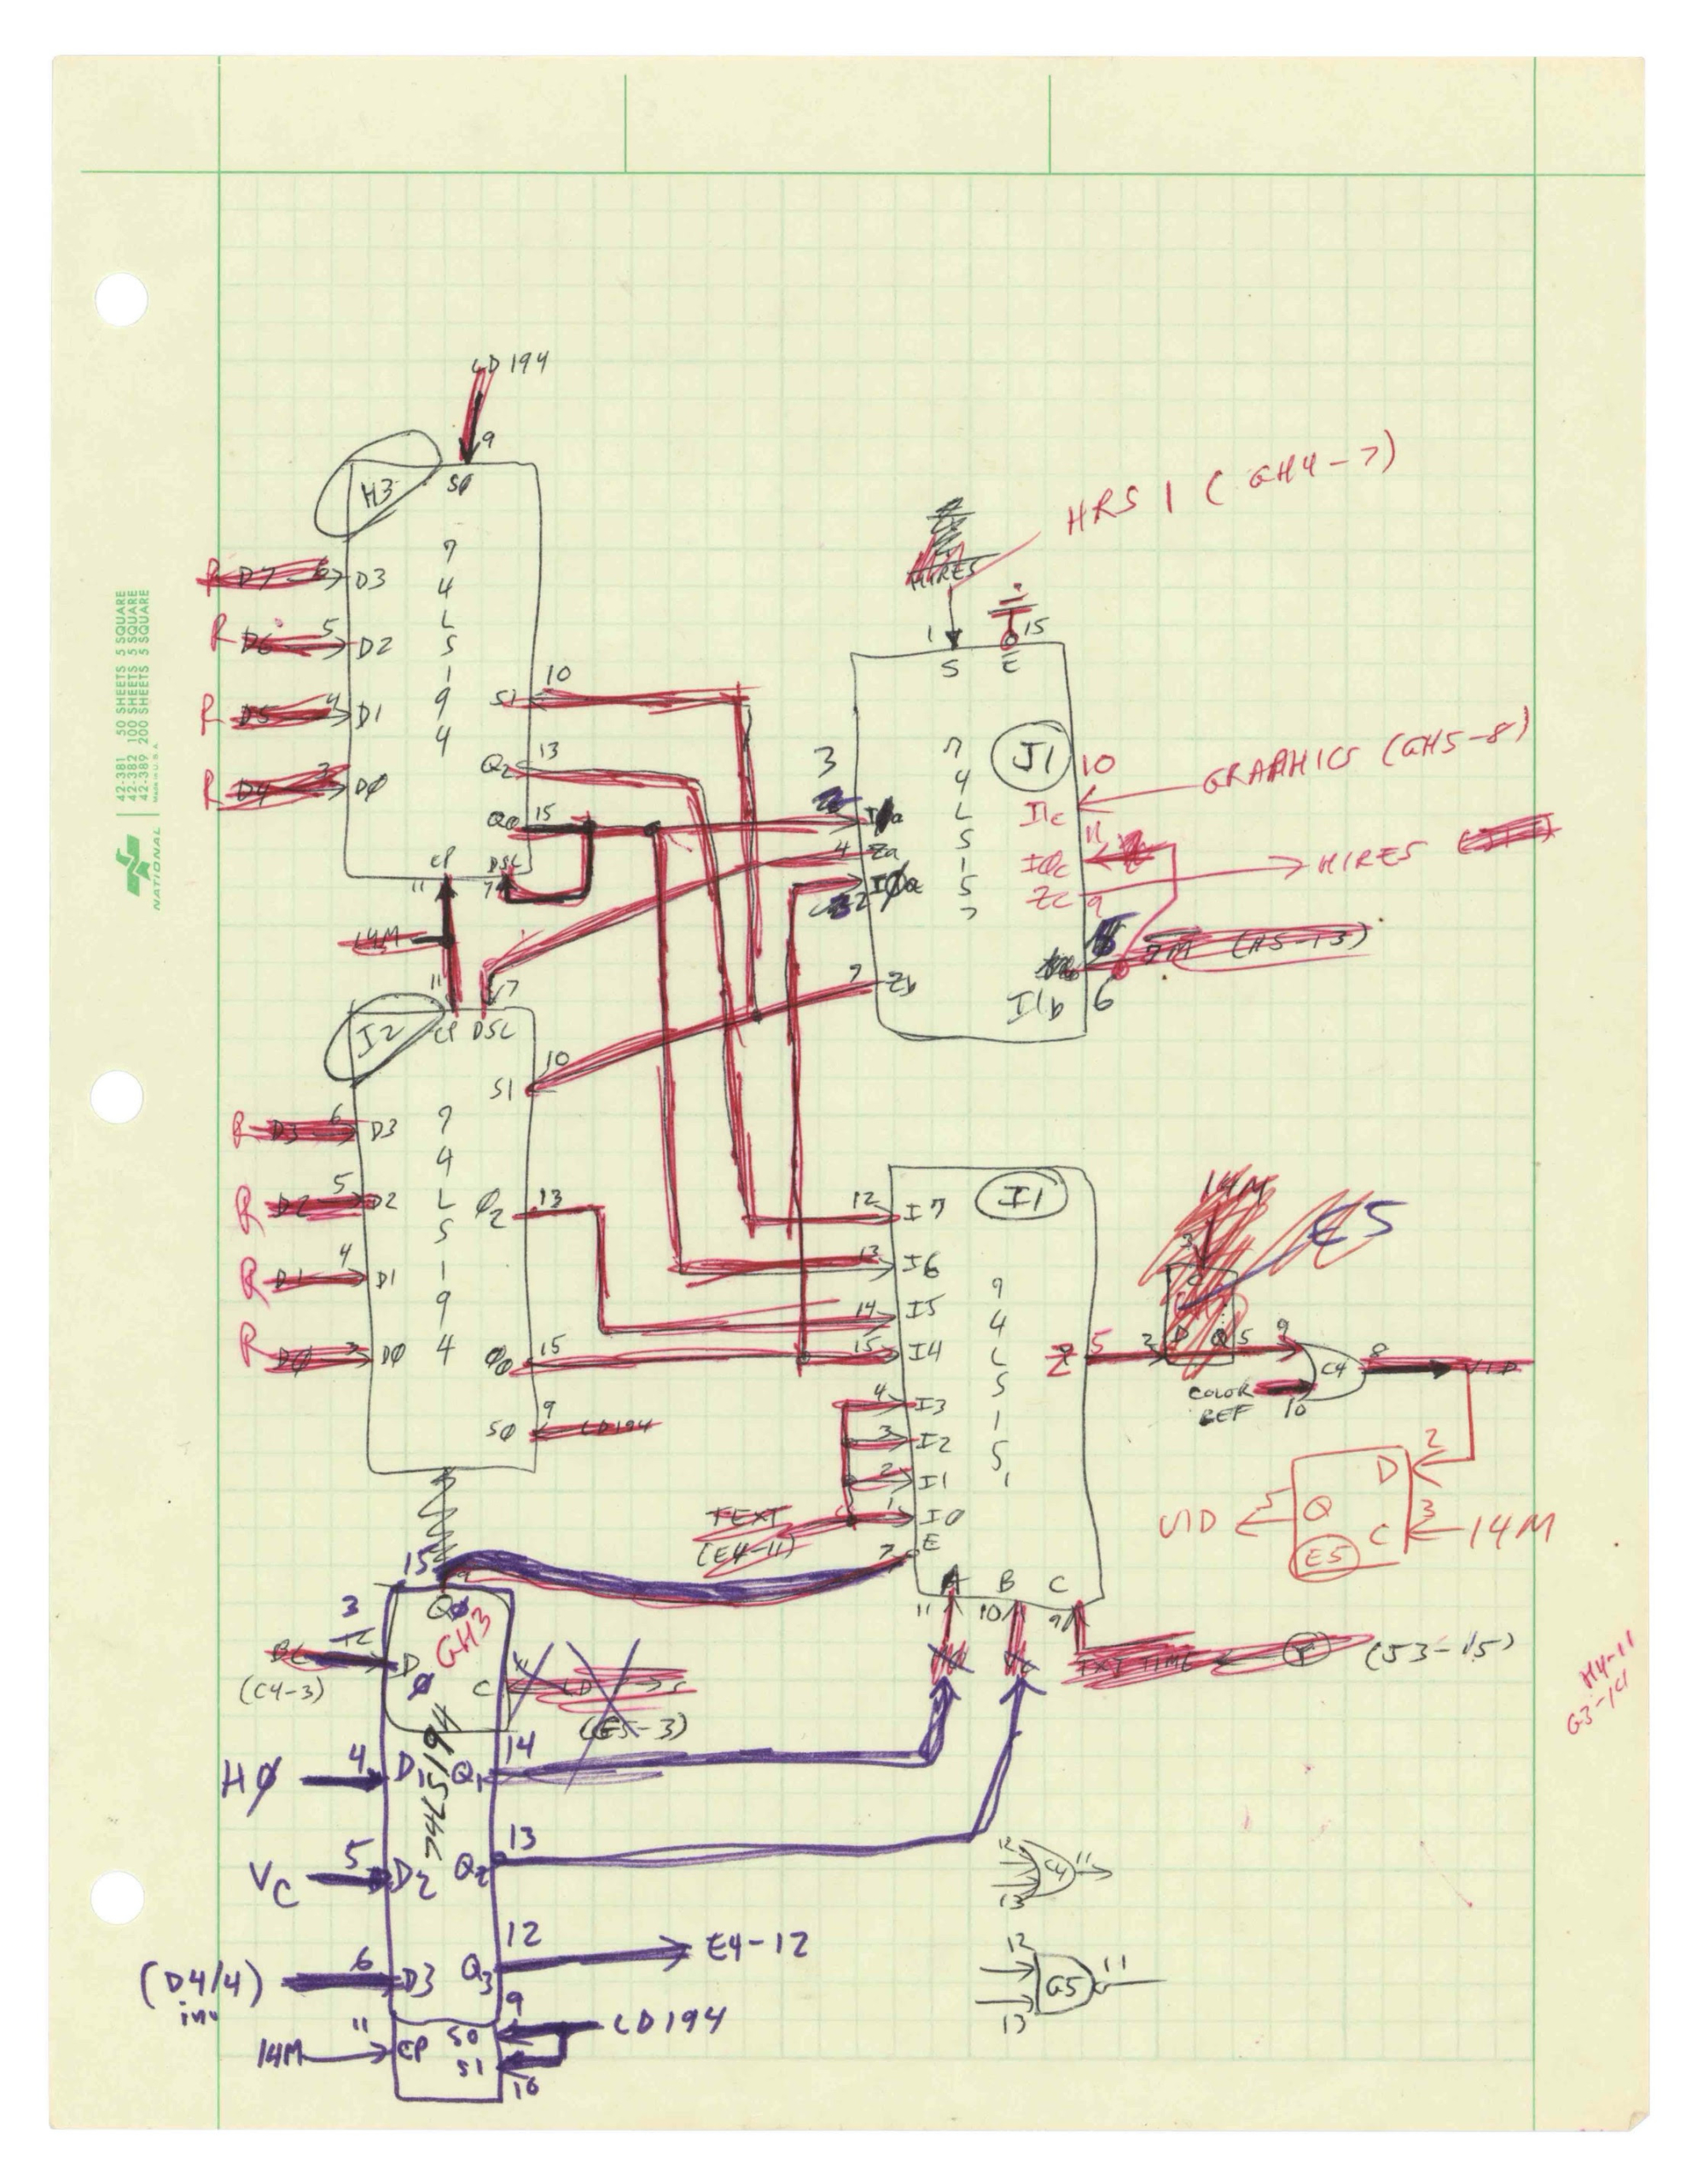 LD 194
9
H3
S0
7
4
L
S
1
9
4
R D7 6 D3
R D6 5 D2
R D5 4 D1
R D4 3 D0
S1 10
Q2 13
Q0 15
CP DSL
11 7
14M
11 7
I2
CP DSL
S1 10
7
4
L
S
1
9
4
R D3 6 D3
R D2 5 D2
R D1 4 D1
R D0 3 D0
Q2 13
Q0 15
S0 9 LD194
HRS 1 (GH4-7)
HIRES
1 15
S E
J1
7
4
L
S
1
5
7
3
I1a
4 Za
2 I0a
7 Zb
10
I1c
GRAPHICS (GH5-8)
11
I0c
Zc 9
HIRES
7M (A5-13)
I1b 6
I1
7
4
L
S
1
5
1
12 I7
13 I6
14 I5
15 I4
4 I3
3 I2
2 I1
1 I0
7 E
TEXT
(E4-11)
A B C
11 10 9
TXT TIME
F
(J3-15)
Z 5
14M
3
C
E5
2 D Q 5
9
C4
8
VID
COLOR
REF
10
D 2
Q 5
VID
C 3 14M
E5
H4-11
G3-14
15
Q0
GH3
3
12
BL
(C4-3)
D
0
C 11 LD
(E5-3)
74LS194
H0 4 D1 Q1 14
VC 5 D2 Q2 13
(D4/4) 6 D3 Q3 12 E4-12
inv
14M 11 CP
S0 9 LD194
S1 10
12
13
C4
11
12
13
G5
11
42-381 50 SHEETS 5 SQUARE
42-382 100 SHEETS 5 SQUARE
42-389 200 SHEETS 5 SQUARE
Made in U.S.A.
NATIONAL